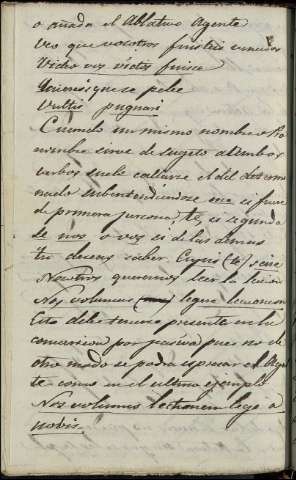 o añada el Ablativo Agente
Veo que vosotros fuisteis vencidos
Video vos victos fuisse
Quereis que se pelee
Vultis pugnari
Cuando un mismo nombre o Pro
nombre sirve de sugeto a ambos
verbos suele callarse el del determi
nado subentendiendose me si fuere
de primera persona te, si segunda
de nos o vos si de las demas
tu deseas saber Cupis (te) scire
Nosotros queremos leer la leccion
Nos volumus legere lectionem
Esto debe tenerse presente en la
conversion por pasiva pues no de
otro modo se podra espresar el Agen
te como en el ultimo ejemplo
Nos volumus lectionem legi a
nobis